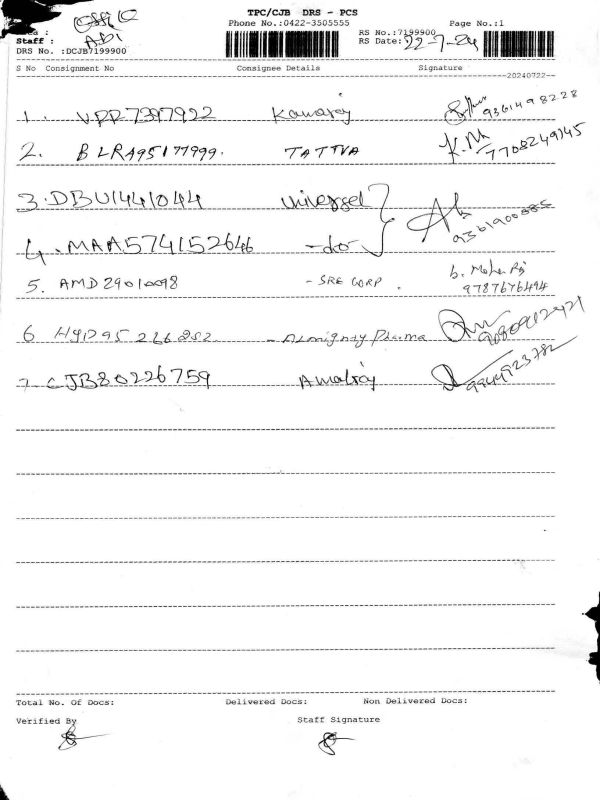 TPC/CJB DRS - PCS
Phone No.:0422-3505555 Page No.:1
Staff : ADI RS No.:7199900
DRS No. :DCJB7199900 RS Date: 22-7-24
S No Consignment No Consignee Details Signature
20240722
1. VPR7397922 Kamaraj 9361498228
2. BLRA95177999. TATTVA K.M 7708249145
3. DBU1441044 Universel
4. MAA574152646 -do- 9361900885
5. AMD29010098 - SRE CORP. b. Mohan Raj 9787676494
6 HYD95266252 - Almighty Pharma
7. CJB80226759 Amalraj 9944923782
Total No. Of Docs: Delivered Docs: Non Delivered Docs:
Verified By Staff Signature